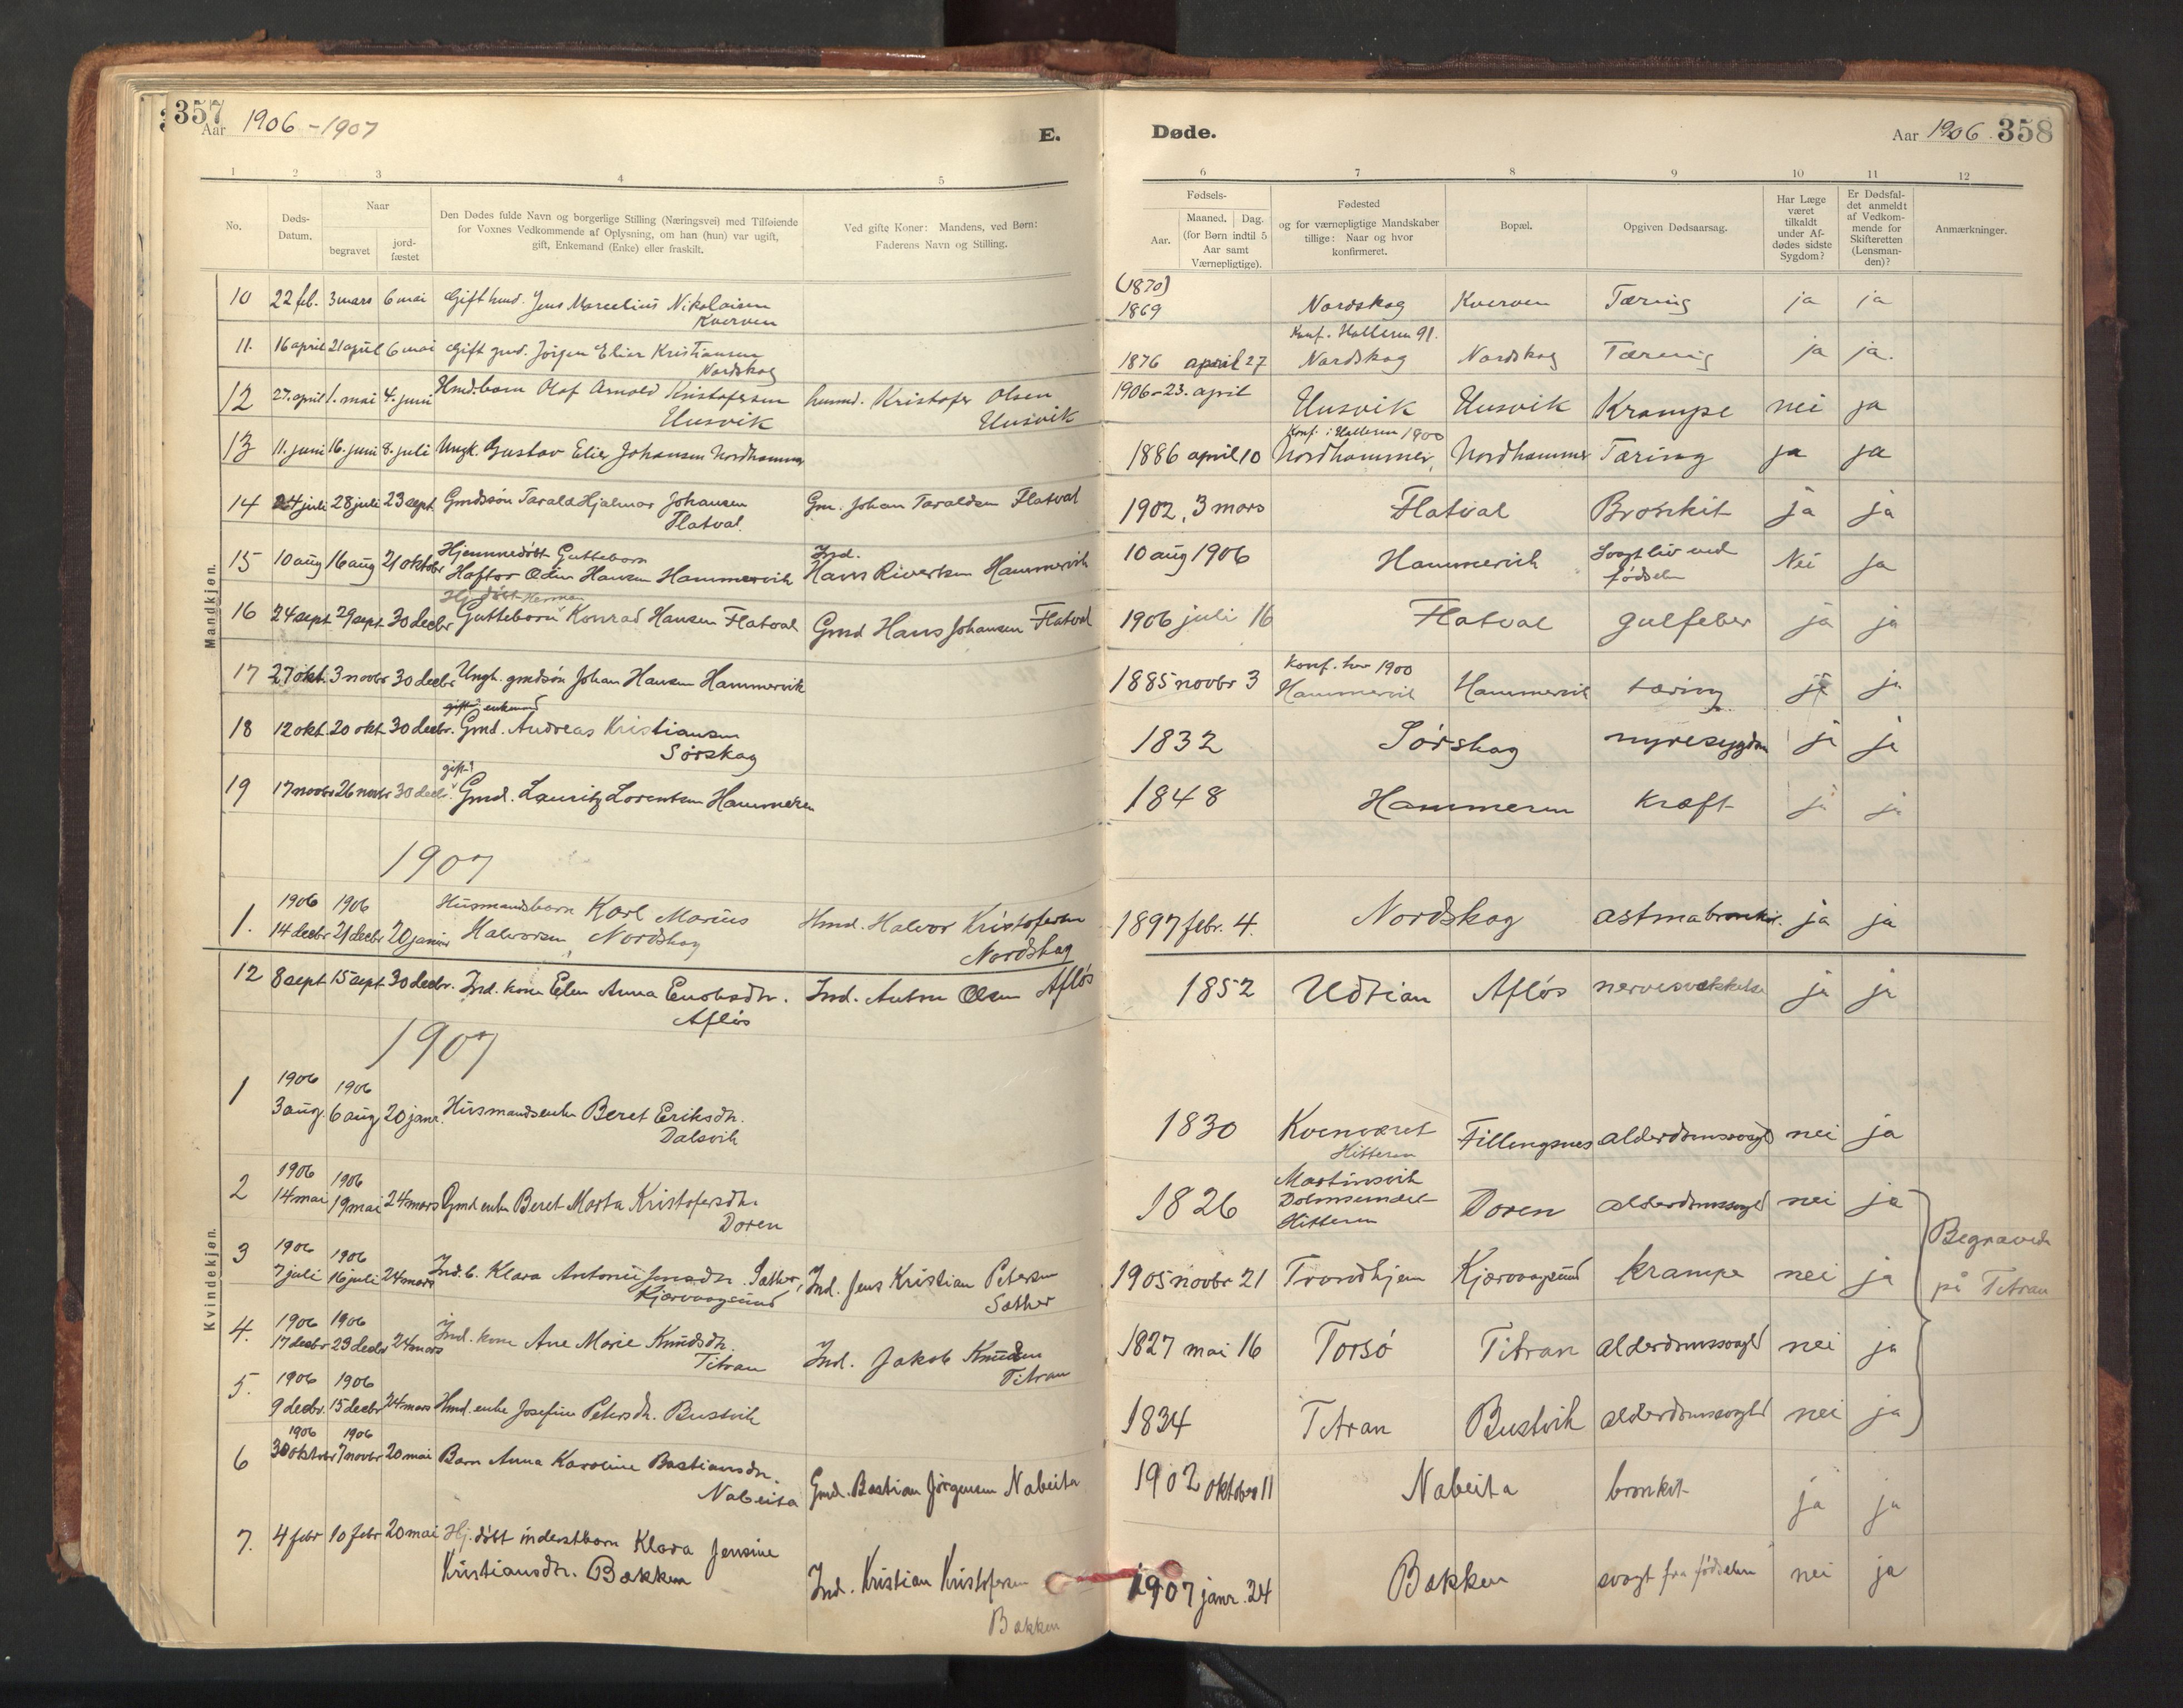 357
Aar 1906-1907
E.
Døde.
Aar 1906.
358
1 2 3 4 5
6 7 8 9 10 11 12
No.
Døds-
Datum.
Naar
begravet
jord-
fæstet
Den Dødes fulde Navn og borgerlige Stilling (Næringsvei) med Tilføiende
for Voxnes Vedkommende af Oplysning, om han (hun) var ugift,
gift, Enkemand (Enke) eller fraskilt.
Ved gifte Koner: Mandens, ved Børn:
Faderens Navn og Stilling.
Fødsels-
Aar.
Maaned. Dag.
(for Børn indtil 5
Aar samt
Værnepligtige).
Fødested
og for værnepligtige Mandskaber
tillige: Naar og hvor
konfirmeret.
Bopæl.
Opgiven Dødsaarsag.
Har Læge
været
tilkaldt
under Af-
dødes sidste
Sygdom?
Er Dødsfal-
det anmeldt
af Vedkom-
mende for
Skifteretten
(Lensman-
den)?
Anmærkninger.
Mandkjøn.
10 22 feb. 3 mars 6 mai Gift hmd. Jens Marcelius Nikolaisen
Kverven
(1870)
1869 Nordskag Kverven Tæring ja ja
11. 16 april 21 april 6 mai Gift gmd. Jørgen Elier Kristiansen
Nordskag
Konf. Halleren 91.
1876 april 27 Nordskag Nordskag Tæring ja ja.
12 27. april 1. mai 4. juni Hmd.barn Olaf Arnold Kristofersen
Husvik
husmd. Kristofer Olsen
Husvik
1906-23. april Husvik Husvik Krampe nei ja
13 11. juni 16. juni 8. juli Ungk. Gustav Elier Johansen Nordhammer
Konf. i Halleren 1900
1886 april 10 Nordhammer, Nordhammer Tæring ja ja
14 24 juli 28 juli 23 sept. Gmdssøn Tarald Hjalmar Johansen
Flatval.
Gm. Johan Taraldsen Flatval
1902, 3 mars Flatval Bronkit ja ja
15 10 aug 16 aug 21 oktobr Hjemmedøbt Guttebarn
Haftor Odin Hansen Hammervik
Ind.
Hans Rivertsen Hammervik
10 aug 1906 Hammervik Svagt liv ved
fødselen Nei ja
Hj. døbt Herman
16 24 sept. 29 sept. 30 decbr Guttebarn Konrad Hansen Flatval Gmd Hans Johansen Flatval
1906 juli 16 Flatval gulfeber ja ja
17 27 okt. 3 novbr 30 decbr Ungk. gmdsøn Johan Hansen Hammervik
konf. her 1900
1885 novbr 3 Hammervik Hammervik tæring ja ja
gift enkemand
18 12 okt. 20 okt 30 decbr. Gmd. Andreas Kristiansen
Sørskag
1832 Sørskag nyresygdom ja ja
gift
19 17 novbr 26 novbr 30 decbr. Gmd. Lauritz Lorentsen Hammeren
1848 Hammeren kræft ja ja
1907
1. 1906 1906
14 decbr 21 decbr 20 januar Husmandsbarn Karl Marius
Halvorsen, Nordskag
Hmd. Halvor Kristofersen
Nordskag
1897 febr. 4. Nordskag astmabronkit. ja ja
Kvindekjøn.
12 8 sept 15 sept. 30 decbr. Ind. kone Elen Anna Enoksdtr.
Afløs
Ind. Anton Olsen Afløs
1852 Udtian Afløs nervesvækkelse ja ja
1907
1 1906 1906
3 aug. 6 aug 20 janr. Husmandsenke Beret Eriksdtr.
Dalsvik
1830 Kvenværet
Hitteren
Fillingsnes alderdomssvagh nei ja
2 1906 1906
14 mai 19 mai 24 mars Gmd enke Beret Marta Kristofersdtr.
Doren
1826 Martinsvik
Dolmsundet
Hitteren
Doren alderdomssvagh nei ja
Begravede
på Titran
3 1906 1906
7 juli 16 juli 24 mars Ind.b. Klara Antonie Jensdtr. Sæther,
Kjærvaagsund
Ind. Jens Kristian Petersen
Sæther
1905 novbr 21 Trondhjem Kjærvaagsund krampe nei ja
4. 1906 1906
17 decbr 23 decbr 24 mars Ind. kone Ane Marie Knudsdtr.
Titran
Ind. Jakob Knudsen
Titran
1827 mai 16 Torsø Titran alderdomssvagh nei ja
5. 1906 1906
9 decbr. 15 decbr 24 mars Hmd. enke Josefine Petersdtr. Bustvik
1834 Titran Bustvik alderdomssvagh nei ja
6 1906 1906
30 oktobr 7 novbr 20 mai Barn Anna Karoline Bastiansdtr.
Nabeita
Gmd. Bastian Jørgensen Nabeita
1902 oktober 11 Nabeita bronkit ja ja
7. 4 febr 10 febr 20 mai Hj. døbt inderstbarn Klara Jensine
Kristiansdtr. Bakken
Ind. Kristian Kristofersen
Bakken
1907 janr. 24 Bakken svagt fra fødselen nei ja